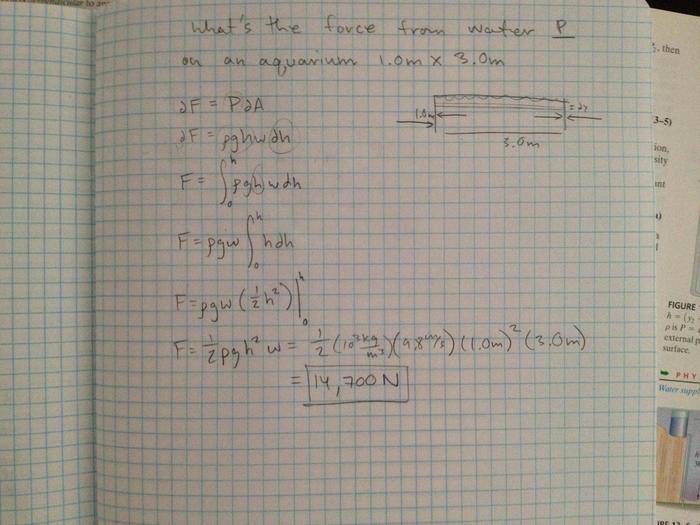 What's the force from water P
on an aquarium 1.0m x 3.0m
∂F = P∂A
1.0m
3.0m
∂F = ρghwdh
F = ∫₀ʰ ρghwdh
F = ρgw ∫₀ʰ hdh
F = ρgw (½h²)|₀ʰ
F = ½ρgh²w = ½ (10³ kg/m³)(9.8 m/s)(1.0m)²(3.0m)
= 14,700 N
, then
3–5)
ion,
sity
FIGURE
h = (y₂
ρ is P =
external p
surface.
PHY
Water suppl